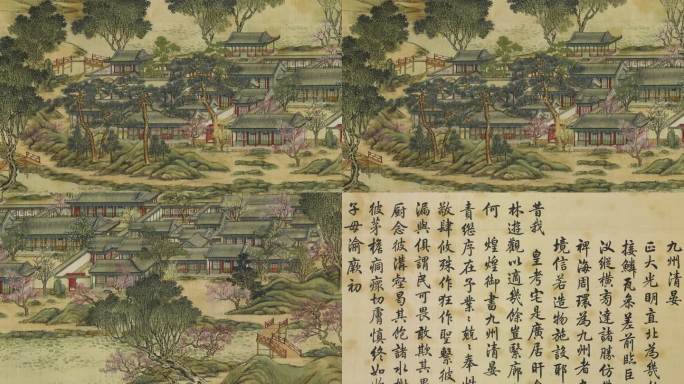 九州清晏
正大光明直北為幾
接鱗瓦參差前臨巨
縱橫旁達諸勝仿
裨海周環為九州者九
境信若造物施設耶
昔我 皇考宅是廣居旰
林遊觀以適幾餘豈繄廊
何 煌煌御書九州清晏
責繼序在予業〻兢〻奉
敬肆攸殊作狂作聖繫彼
漏與俱謂民可畏敢欺其愚
厨念彼溝壑曷其飽諸水
彼茅檐痌瘝切膚慎終如
子毋渝厥初